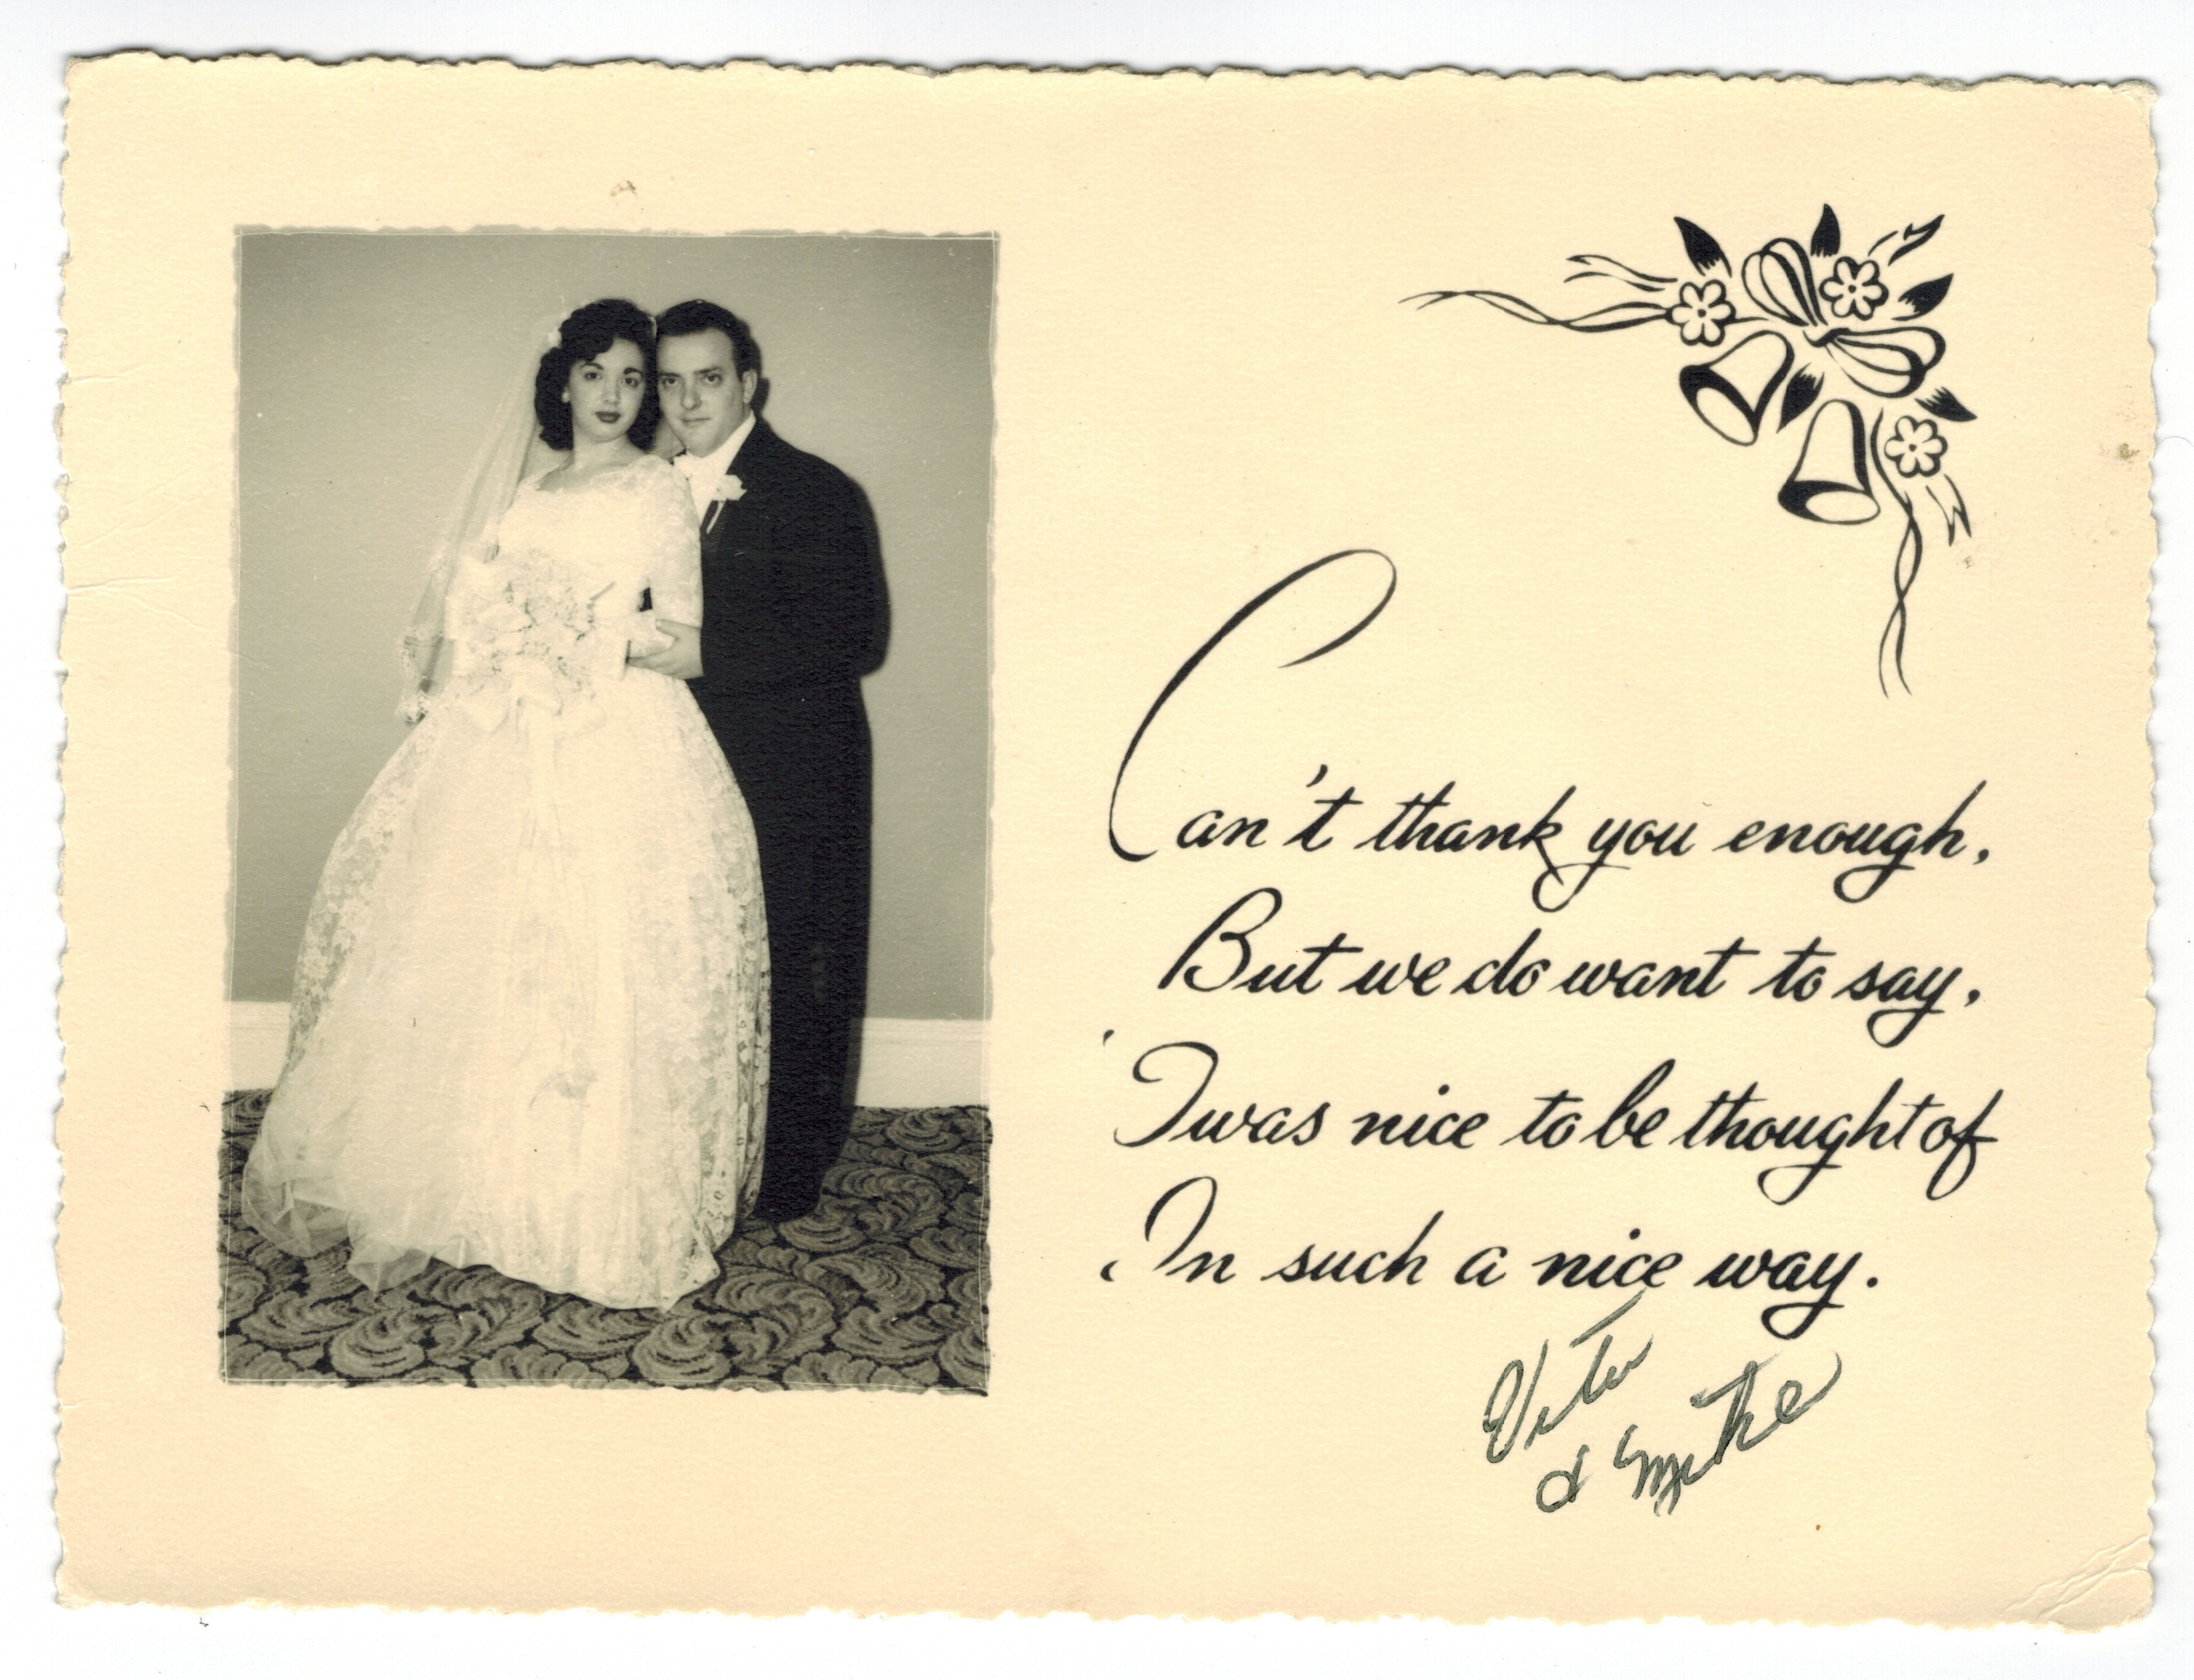 Can't thank you enough,
But we do want to say,
'Twas nice to be thought of
In such a nice way.
& Mike